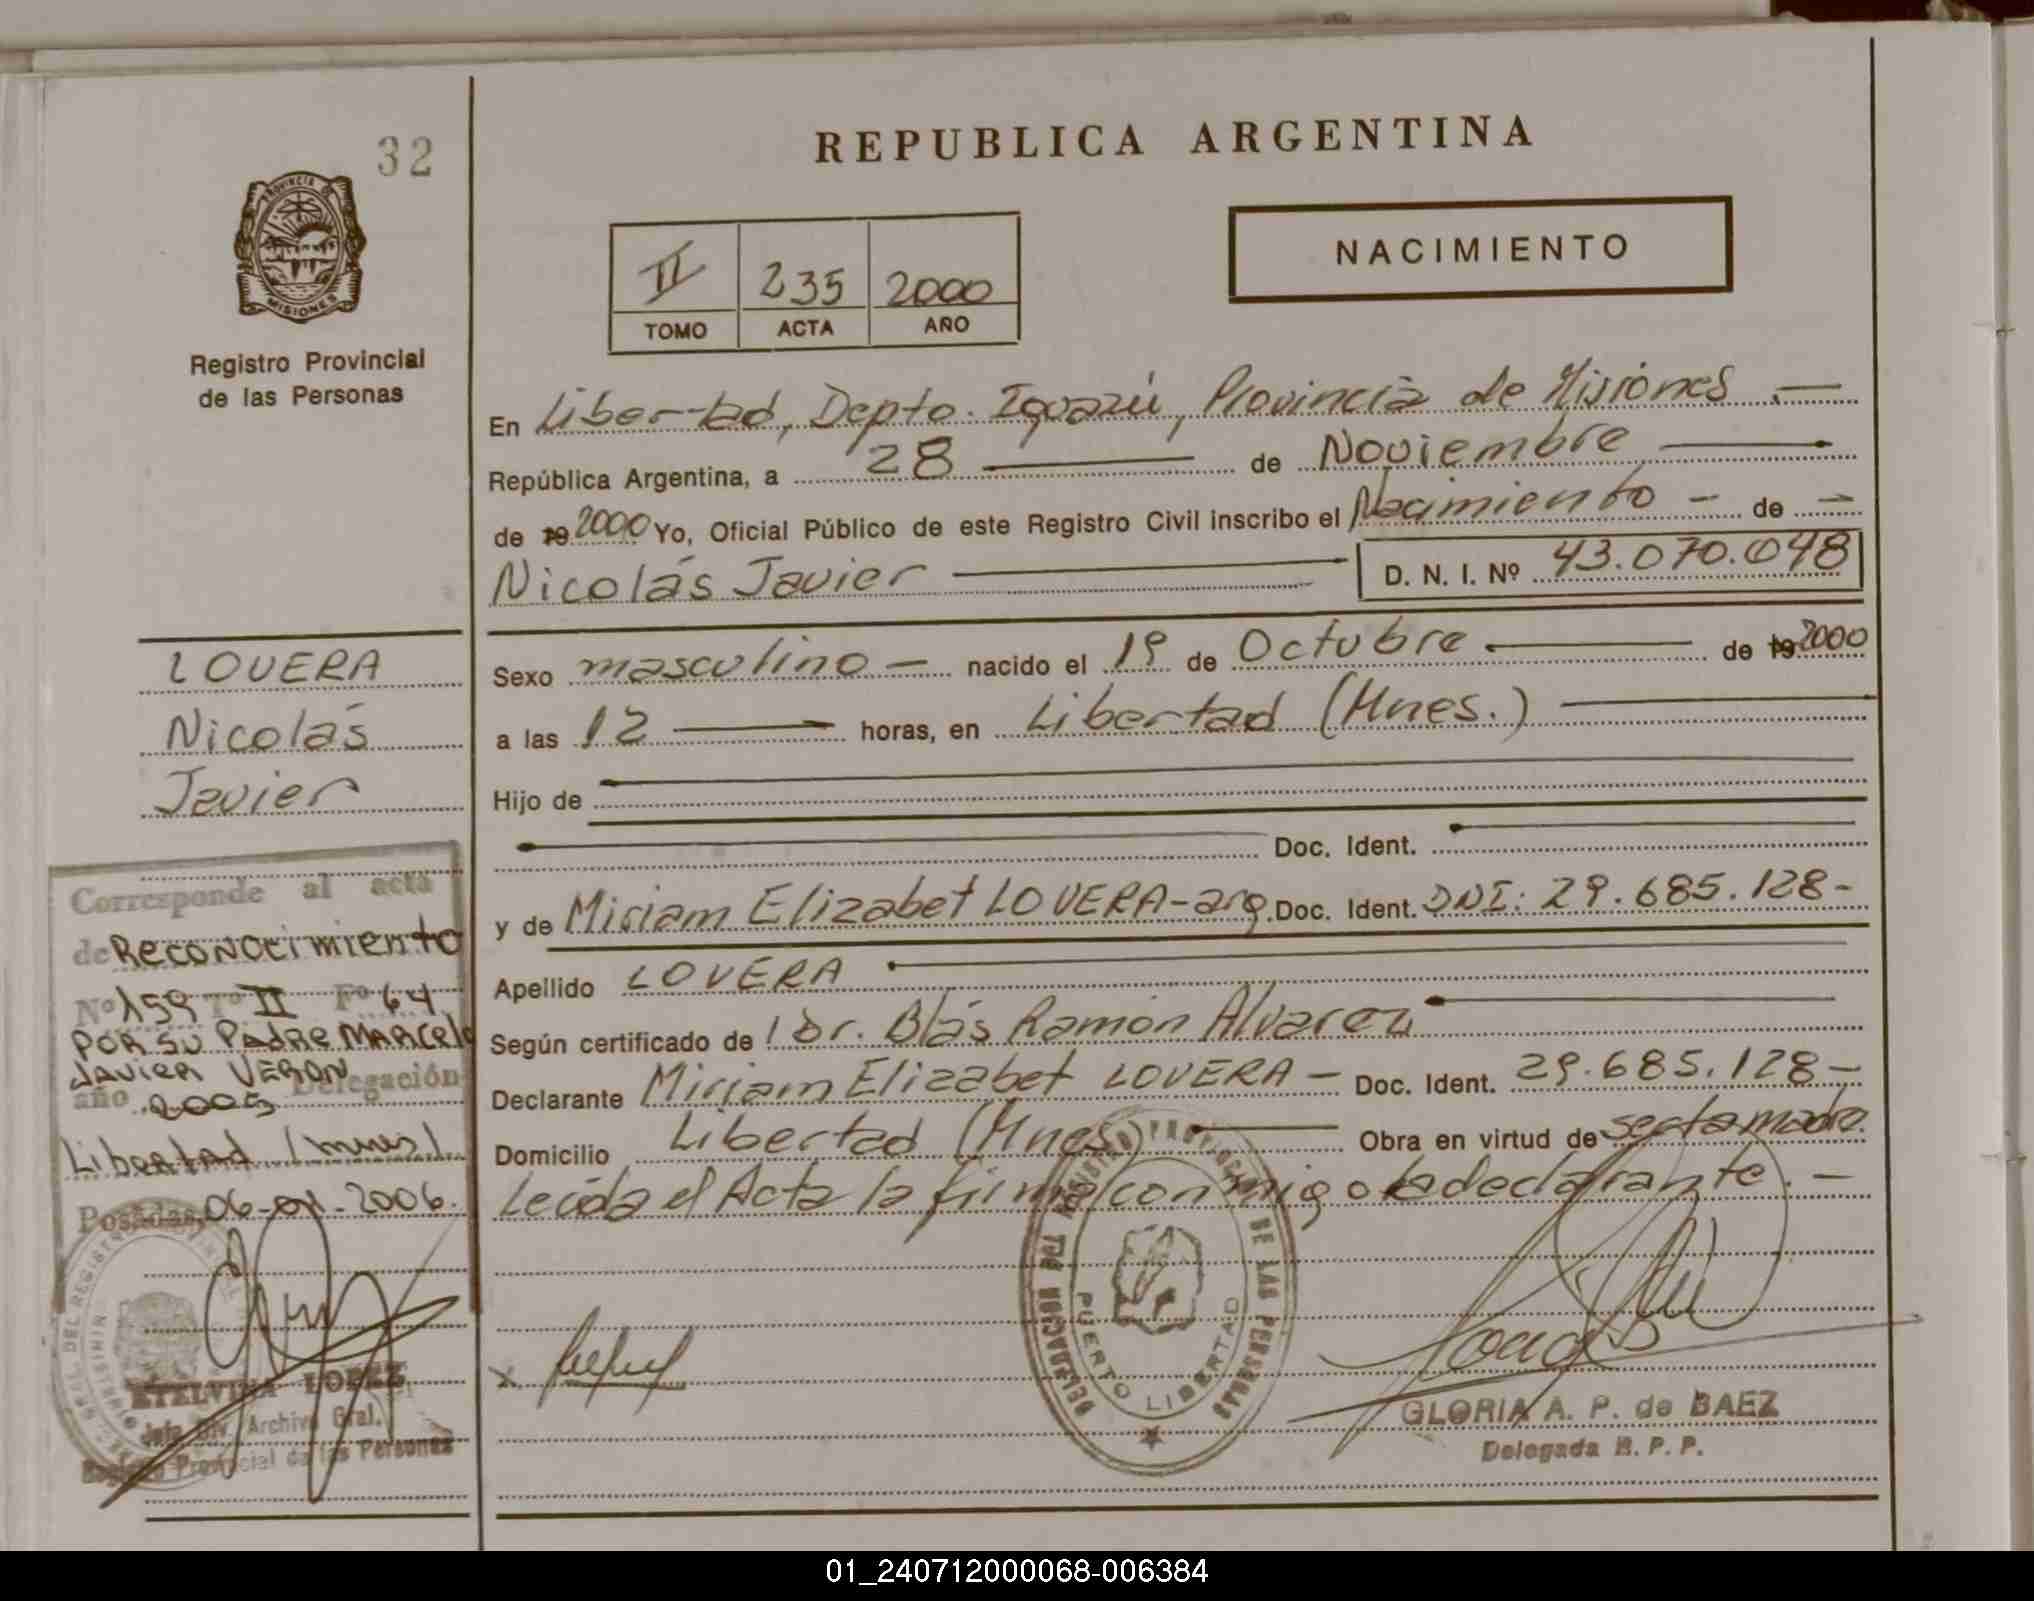 32
REPUBLICA ARGENTINA
PROVINCIA DE
MISIONES
Registro Provincial
de las Personas
II 235 2000
TOMO ACTA AÑO
NACIMIENTO
En Libertad, Depto. Iguazú, Provincia de Misiones.—
República Argentina, a 28 — de Noviembre —
de 19 2000 Yo, Oficial Público de este Registro Civil inscribo el Nacimiento — de —
Nicolás Javier — D. N. I. Nº 43.070.048
Sexo masculino — nacido el 19 de Octubre — de 19 2000
a las 12 — horas, en Libertad (Mnes.) —
Hijo de —
— Doc. Ident. —
y de Miriam Elizabet LOVERA-arg. Doc. Ident. DNI: 29.685.128-
Apellido LOVERA —
Según certificado de Dr. Blás Ramón Alvarez —
Declarante Miriam Elizabet LOVERA — Doc. Ident. 29.685.128—
Domicilio Libertad (Mnes) — Obra en virtud de ser la madre.
Leída el Acta la firma conmigo la declarante.—
LOVERA
Nicolás
Javier
Corresponde al acta
de Reconocimiento
Nº 159 Tº II Fº 64
POR SU PADRE MARCELO
JAVIER VERON
año 2005 Delegación
Libertad (mnes)
Posadas, 06-01-2006.
ETELVINA
Jefa Div. Archivo Gral.
Registro Provincial de las Personas
DELEGACION DEL REGISTRO PROVINCIAL DE LAS PERSONAS
PUERTO LIBERTAD
GLORIA A. P. de BAEZ
Delegada R. P. P.
01_240712000068-006384